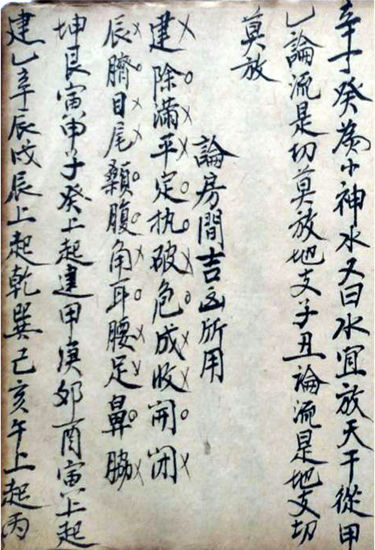 辛丁癸為小神水又曰水宜放天干從甲
乙論流是切莫放地支子丑論流是地支切
莫放
論房間吉凶所用
建除滿平定执破危成收開闭
辰臍目尾顙腹角耳腰足鼻脇
坤艮寅申子癸上起建甲庚卯酉寅上起
建乙辛辰戌辰上起乾巽己亥午上起丙